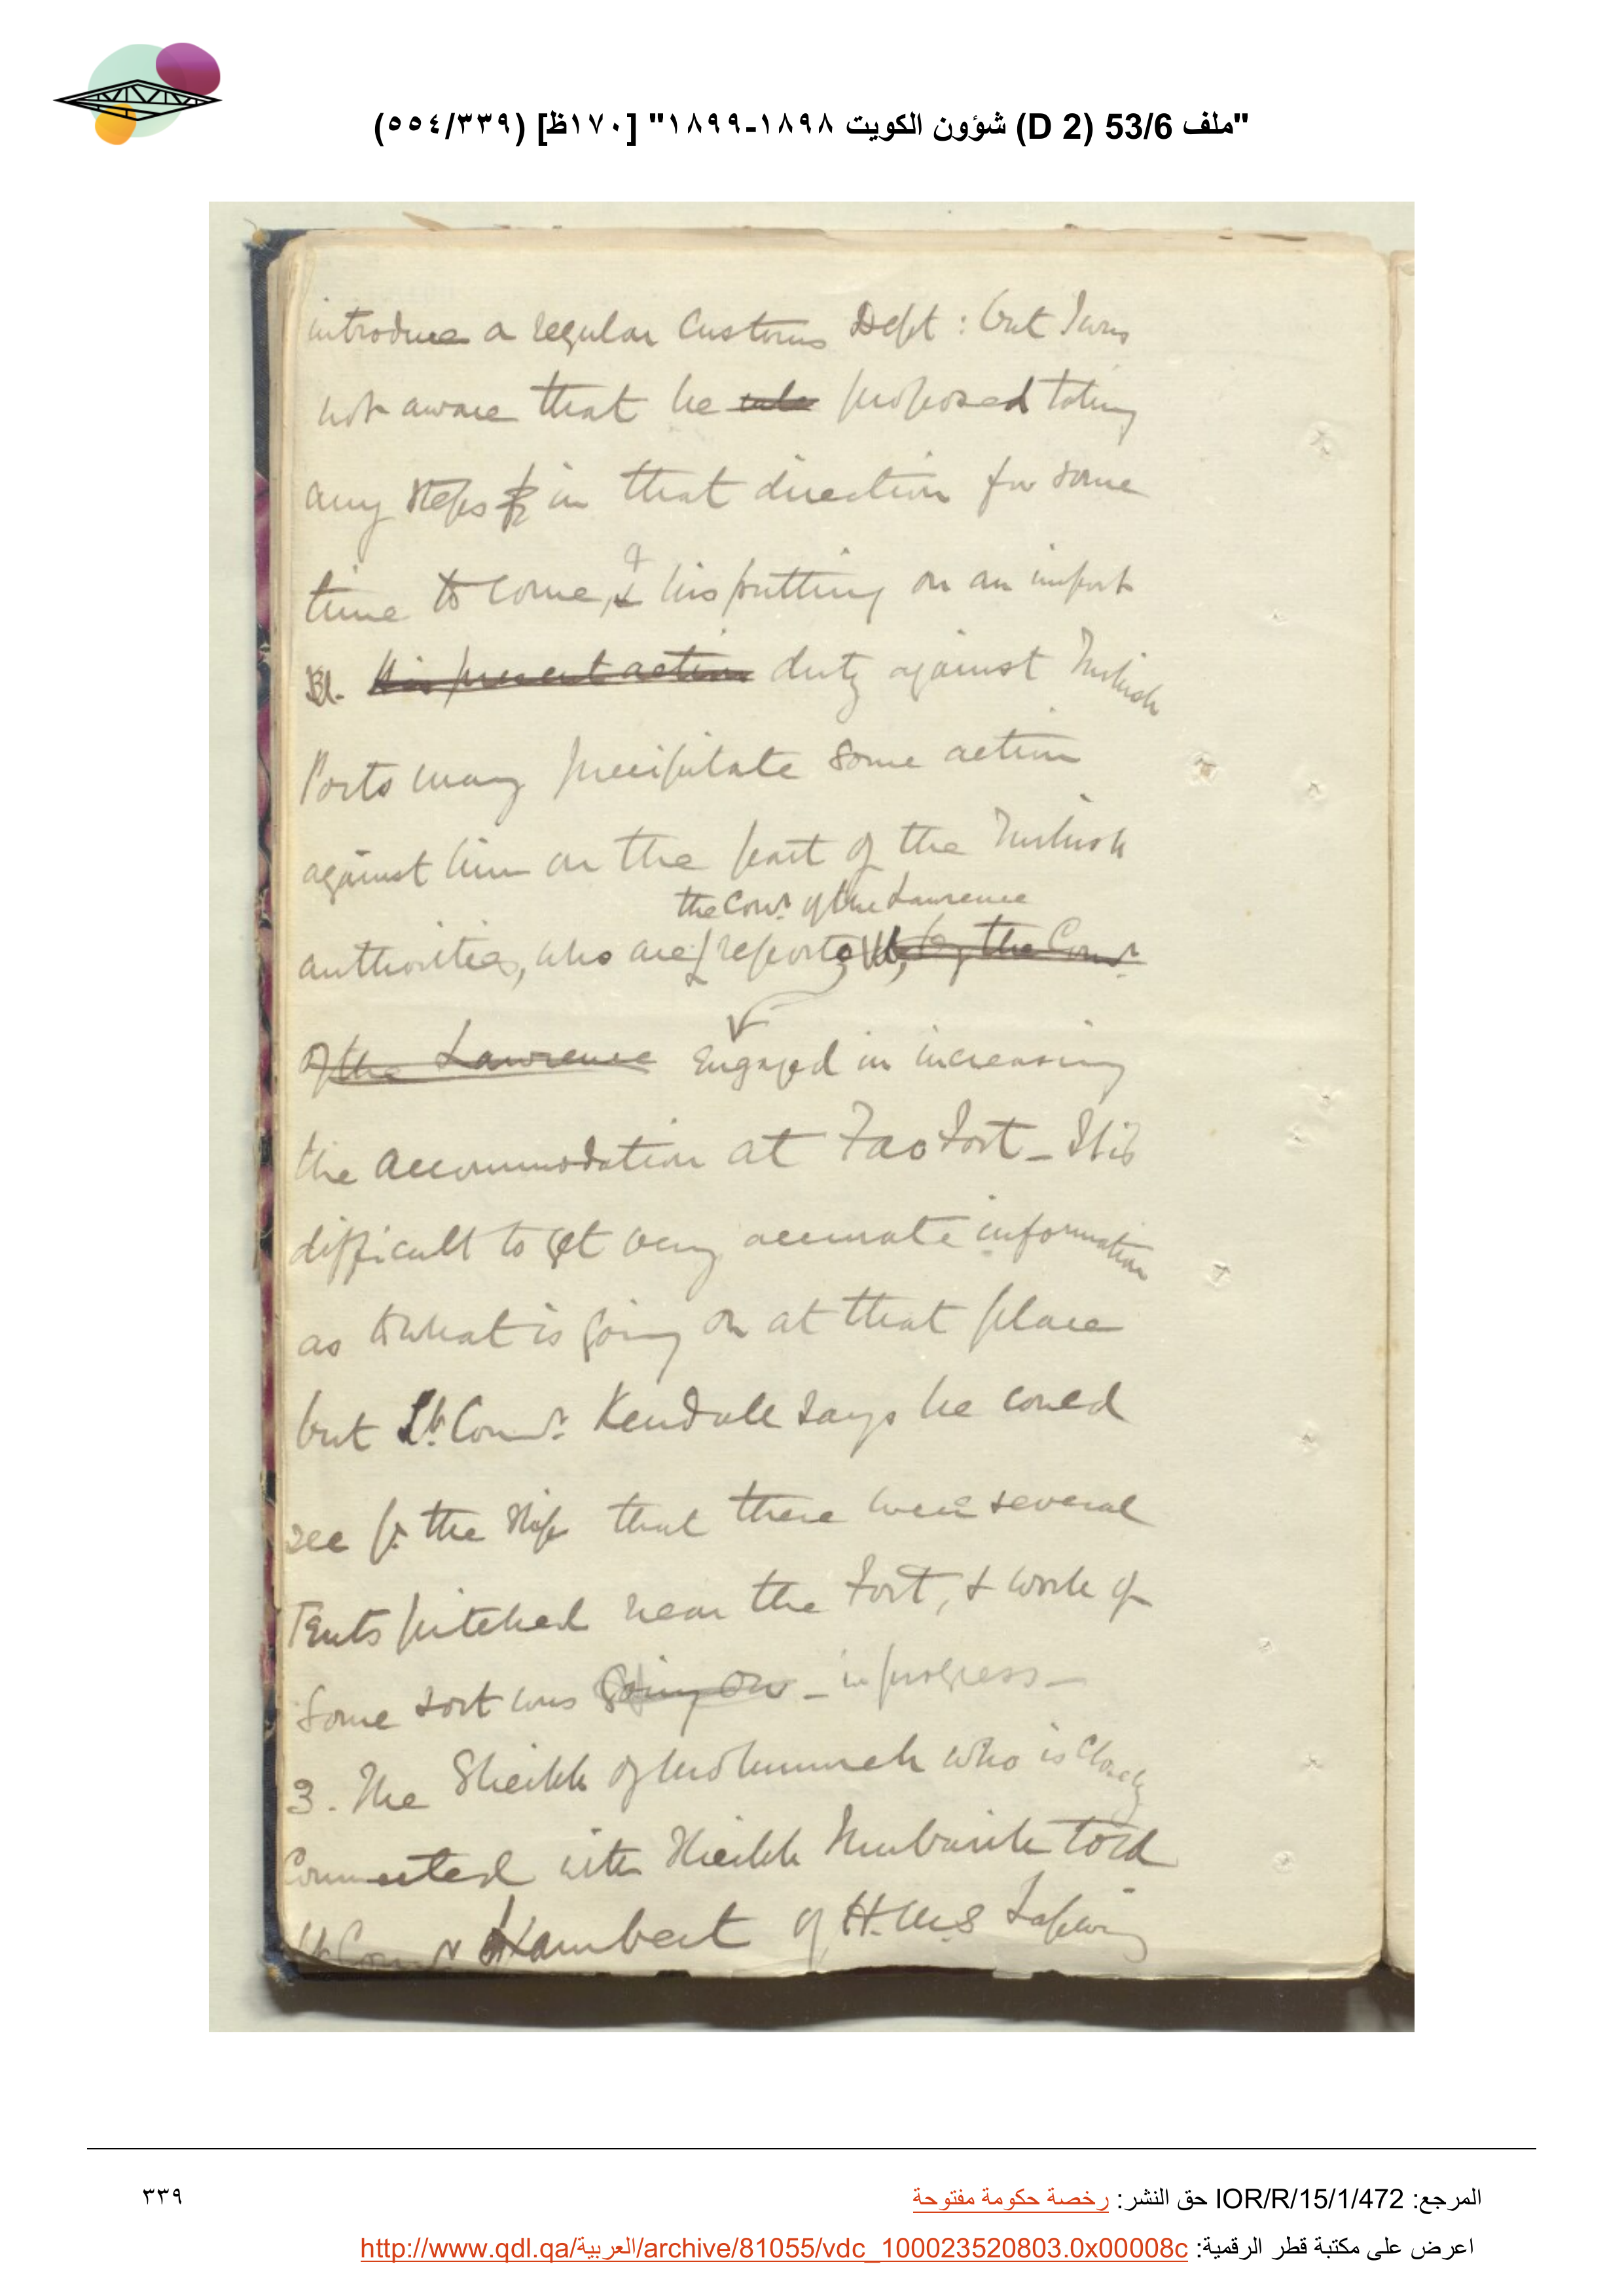 "ملف 53/6 (D 2) شؤون الكويت ١٨٩٨-١٨٩٩" [١٧٠ظ] (٥٥٤/٣٣٩)
introduce a regular Customs Dept : but I was
not aware that he proposed taking
any steps in that direction for some
time to come, & his putting on an import
his present action duty against Turkish
Ports may precipitate some action
against him on the part of the Turkish
the Comr. of the Lawrence
authorities, who are reports by the Comr.
of the Lawrence Engaged in increasing
the accommodation at Fao Fort - It is
difficult to get very accurate information
as to what is going on at that place
but Lt. Comr. Kendall says he could
see fr. the ship that there were several
Tents pitched near the Fort, & work of
some sort was going on - in progress -
3. The Sheikh of Mohummrah who is closely
Connected with Sheikh Mubarik told
Lt Comr Lambert of H.M.S Lapwing
المرجع: IOR/R/15/1/472 حق النشر: رخصة حكومة مفتوحة
٣٣٩
اعرض على مكتبة قطر الرقمية: http://www.qdl.qa/العربية/archive/81055/vdc_100023520803.0x00008c